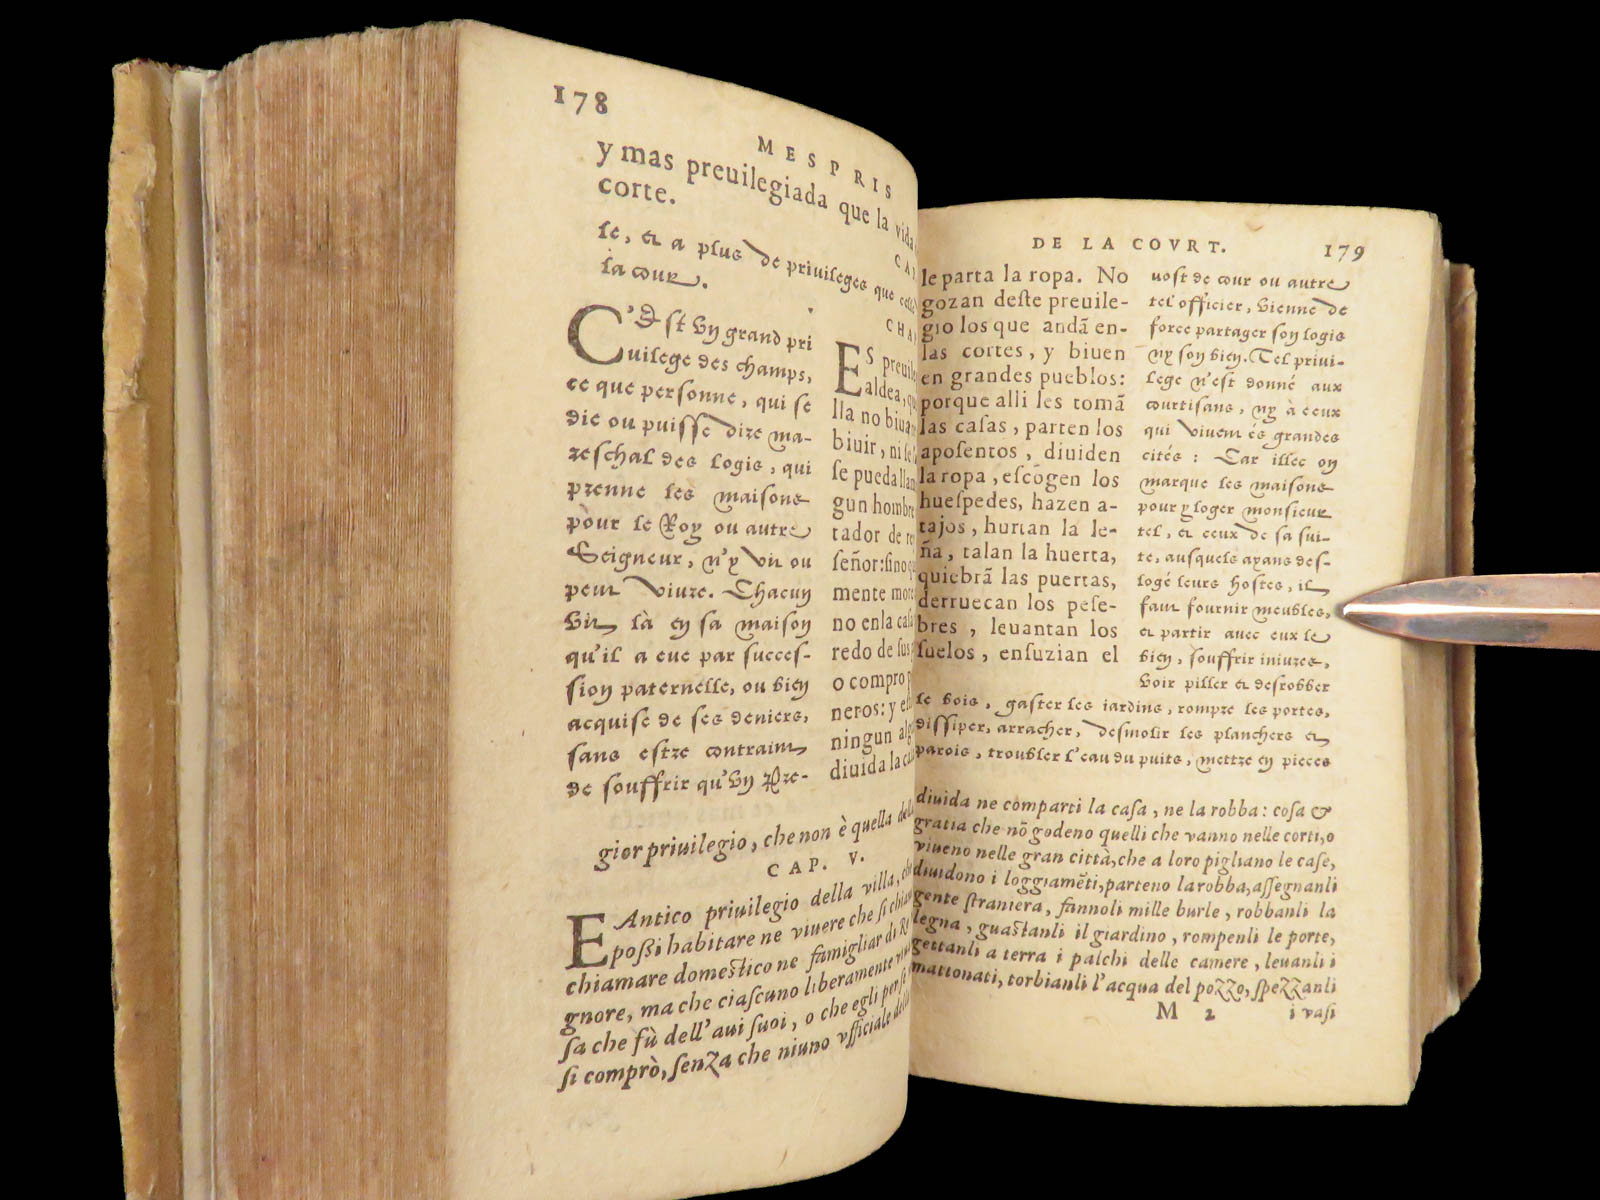 178
MESPRIS
y mas preuilegiada que la vida
corte.
le, & a plus de priuileges que celle
la cour.
C'Est vn grand pri
uilege des champs,
ce que personne, qui se
die ou puisse dire ma-
reschal des logis, qui
prenne les maisons
pour le Roy ou autre
Seigneur, n'y vit ou
peut viure. Chacun
vit là en sa maison
qu'il a eue par succes-
sion paternelle, ou bien
acquise de ses deniers,
sans estre contraint
de souffrir qu'vn Pre-
CHA
ES preuile
aldea, q
lla no biua
biuir, ni
se pueda
gun hombre
tador de
señor: sino
mente mor
no en la casa
redo de sus
o compro
neros: y
ningun
diuida la
gior priuilegio, che non è quella della
CAP. V.
EAntico priuilegio della villa,
possi habitare ne viuere che si chia
chiamare domestico ne famigliar di
gnore, ma che ciascuno liberamente
sa che fù dell'aui suoi, o che egli per
si comprò, senza che niuno vfficiale
DE LA COVRT.
179
le parta la ropa. No
gozan deste preuile-
gio los que andã en-
las cortes, y biuen
en grandes pueblos:
porque alli les tomã
las casas, parten los
aposentos, diuiden
la ropa, escogen los
huespedes, hazen a-
tajos, hurtan la le-
ña, talan la huerta,
quiebrã las puertas,
derruecan los pese-
bres, leuantan los
suelos, ensuzian el
uost de cour ou autre
tel officier, vienne de
force partager son logis
ny son bien. Tel priui-
lege n'est donné aux
courtisans, ny à ceux
qui viuent és grandes
cités: Car illec on
marque les maisons
pour y loger monsieur
tel, & ceux de sa sui-
te, ausquels ayans des-
logé leurs hostes, il
faut fournir meubles,
& partir auec eux le
bien, souffrir iniures,
voir piller & desrobber
le bois, gaster les iardins, rompre les portes,
dissiper, arracher, desmolir les planchers &
parois, troubler l'eau du puits, mettre en pieces
diuida ne comparti la casa, ne la robba: cosa &
gratia che nõ godeno quelli che vanno nelle corti, o
viueno nelle gran città, che a loro pigliano le case,
diuidono i loggiamẽti, parteno la robba, assegnanli
gente straniera, fannoli mille burle, robbanli la
legna, guastanli il giardino, rompenli le porte,
gettanli a terra i palchi delle camere, leuanli i
mattonati, torbianli l'acqua del pozzo, spezzanli
M 2
i vasi